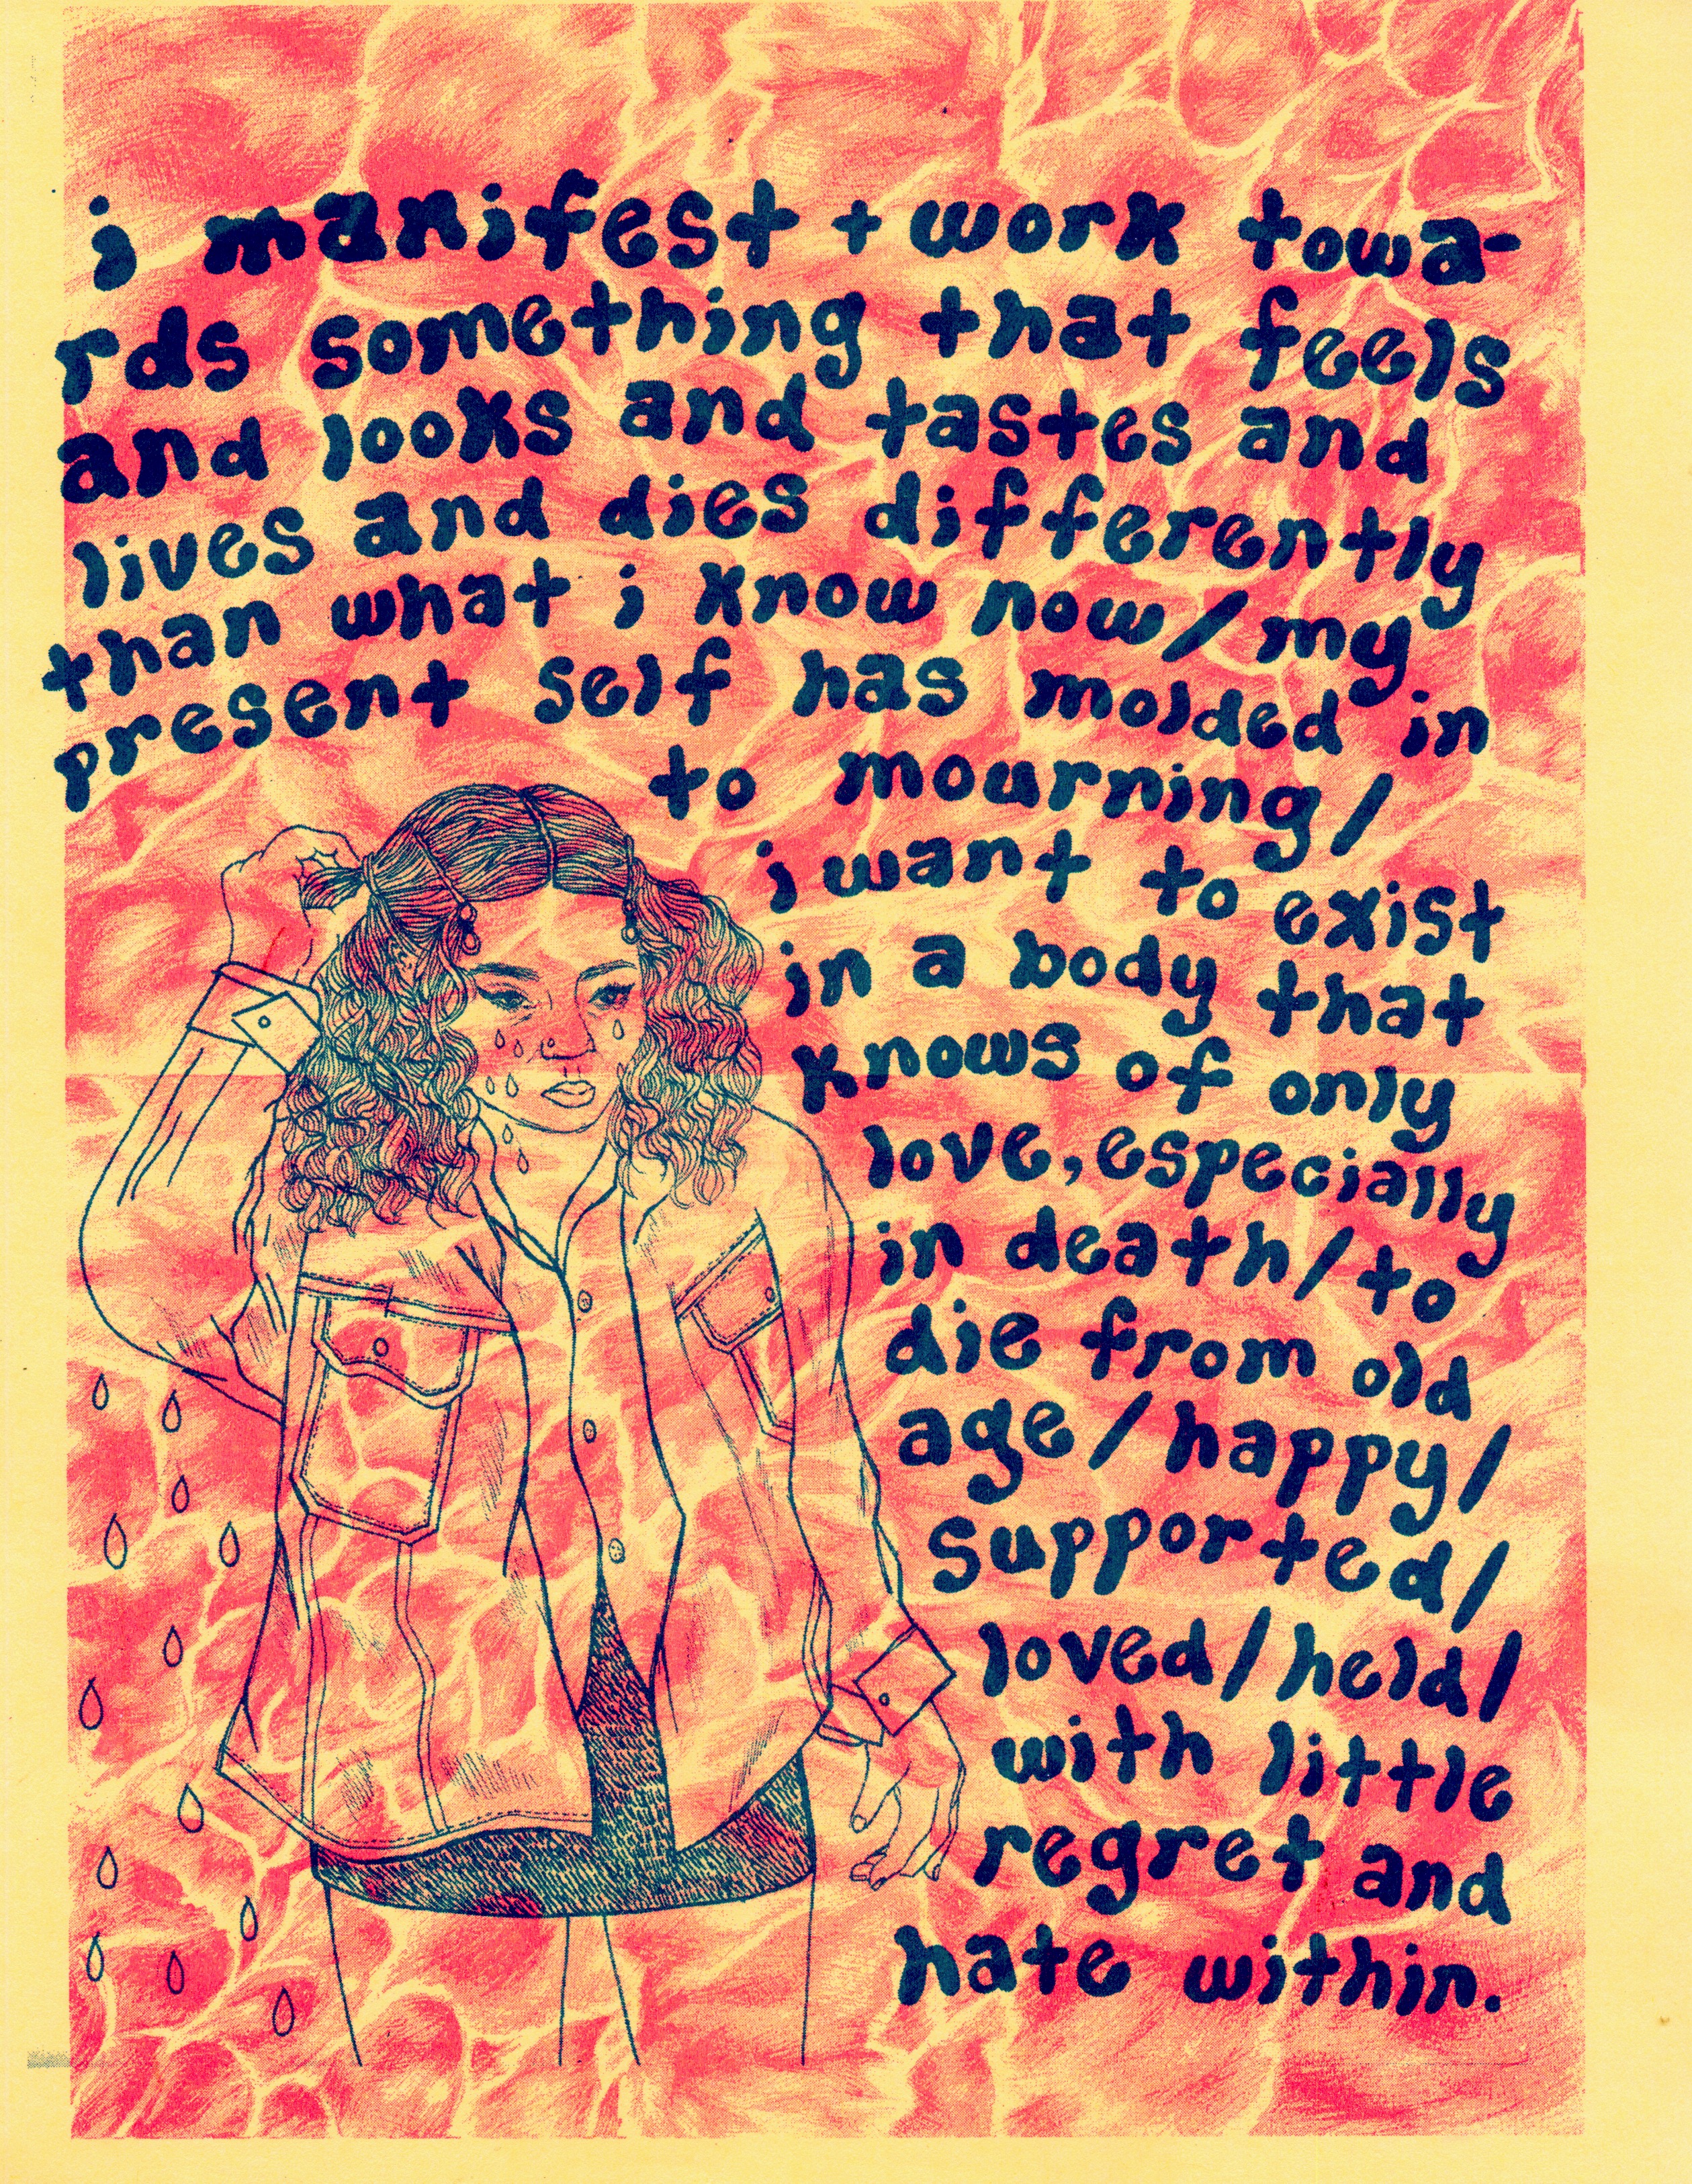 i manifest + work towa-
rds something that feels
and looks and tastes and
lives and dies differently
than what i know now/my
present self has molded in
to mourning/
i want to exist
in a body that
knows of only
love, especially
in death/to
die from old
age/happy/
supported/
loved/held/
with little
regret and
hate within.